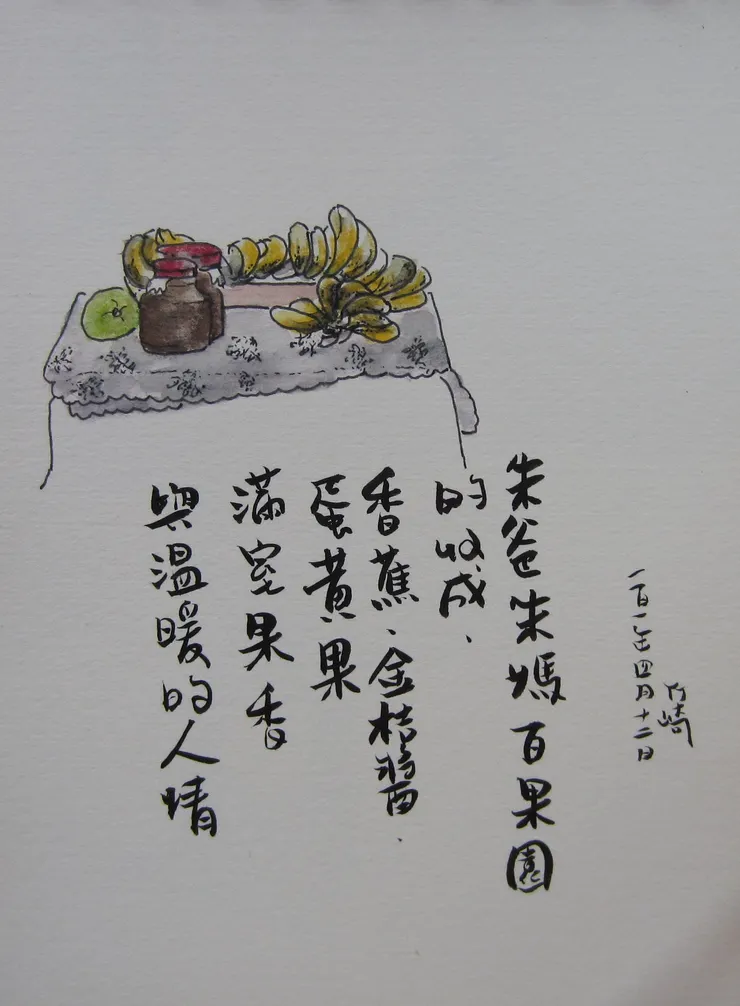 一百一年四月十二日
竹崎
朱爸朱媽百果園
的收成、
香蕉、金桔醬、
蛋黃果
滿室果香
與溫暖的人情